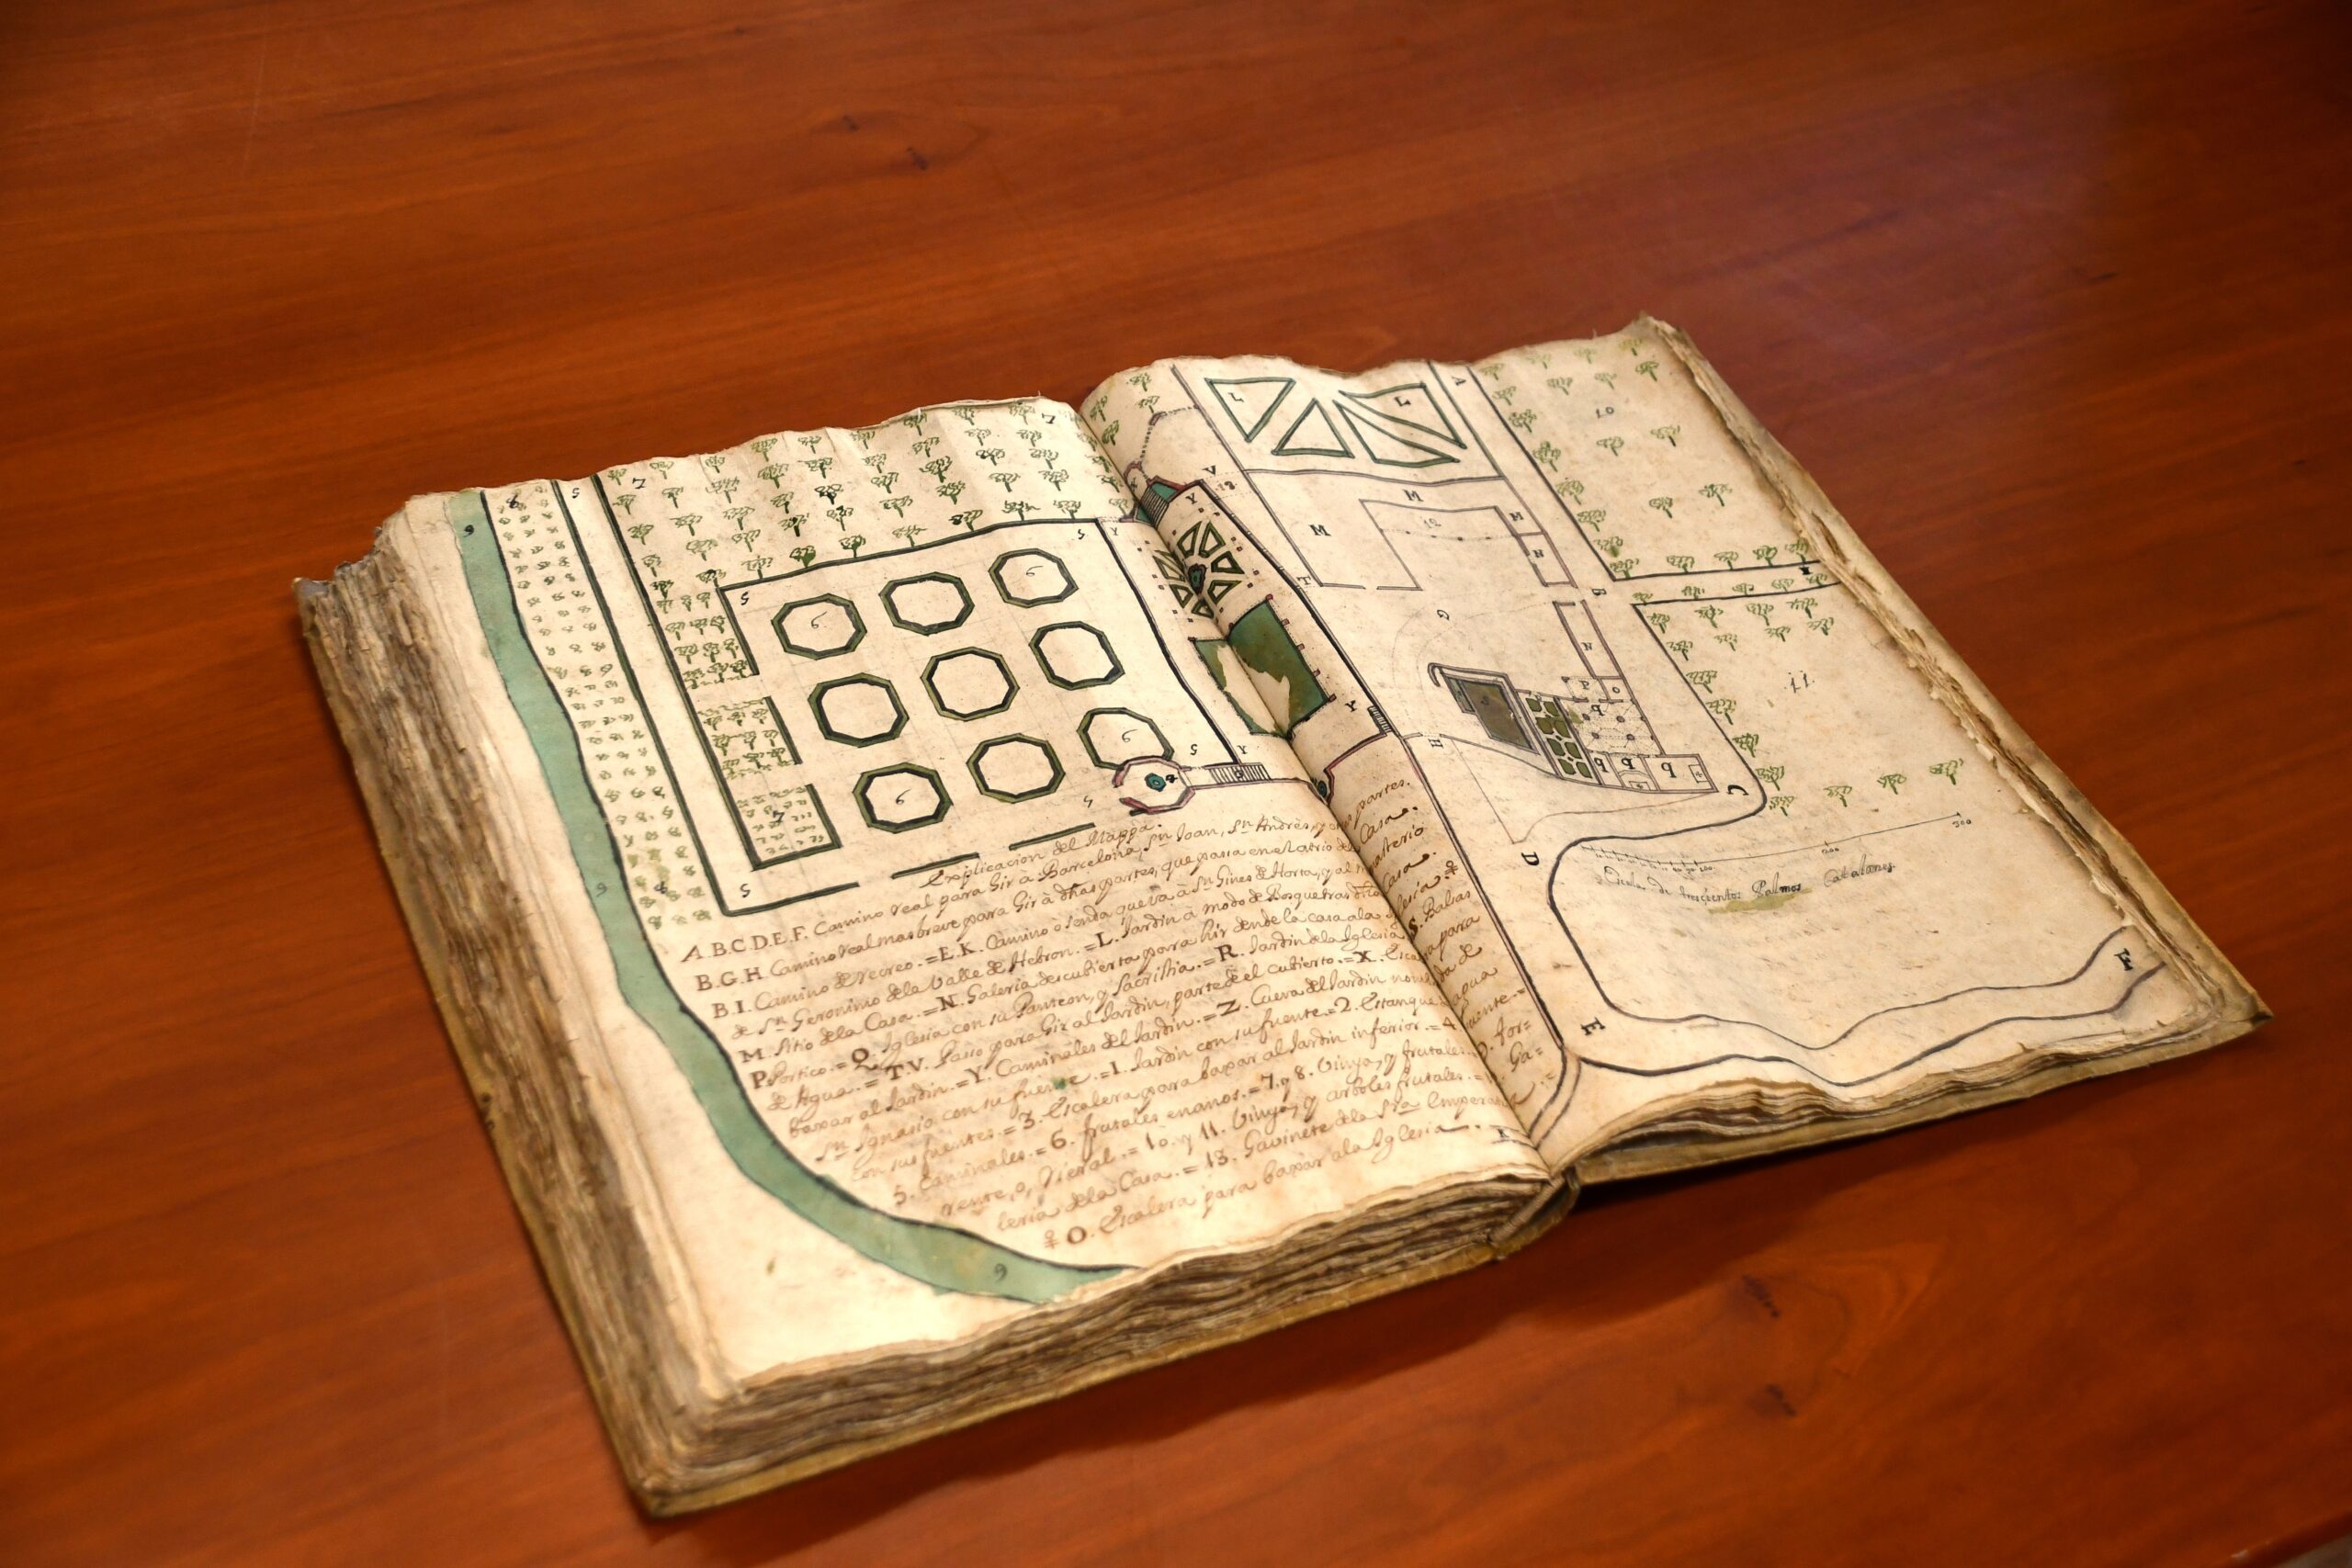 Explicacion del Mappa.
A.B.C.D.E.F. Camino real para hir à Barcelona, Sn. Joan, Sn. Andrès, y partes.
B.G.H. Camino real mas breve para hir à dhas partes, que passa en el atrio de la Casa.
B.I. Camino de recreo. = E.K. Camino ò senda que va à Sn. Gines de Horta, y al Monasterio
de Sn. Geronimo de la Valle de Hebron. = L. Jardin à modo de Bosque tras Casa.
M. Sitio de la Casa. = N. Galeria descubierta para hir dende la casa a la Iglesia.
P. Portico. = Q. Iglesia con su Panteon, y Sacristia. = R. Jardin de la Iglesia S. Balsas
de Agua. = T.V. Passo para hir al Jardin, parte de el cubierto. = X. para
baxar al Jardin. = Y. Caminales del Jardin. = Z. Cueva del Jardin de
Sn. Ignasio con su fuente. = 1. Jardin con su fuente = 2. Estanque agua
con sus fuentes. = 3. Escalera para baxar al Jardin inferior. = 4. fuente. =
5. Caminales. = 6. frutales enanos. = 7. y 8. Vinya, y frutales. 9. Tor=
rente, o, = 10. y 11. Vinya, y arboles frutales. = Ga=
leria de la Casa. = 13. Gavinete de la Sra. Emperatriz
O. Escalera para baxar a la Iglesia
Escala de trescientos Palmos Catalanes
300
A
B
C
D
E
F
G
H
I
K
L L
M M M
N N
O
P
q q q q
T
V
Y Y Y Y
5 5 5 5 5
6 6 6 6
7 7 7
8 8
9 9 9
10
11
12
13